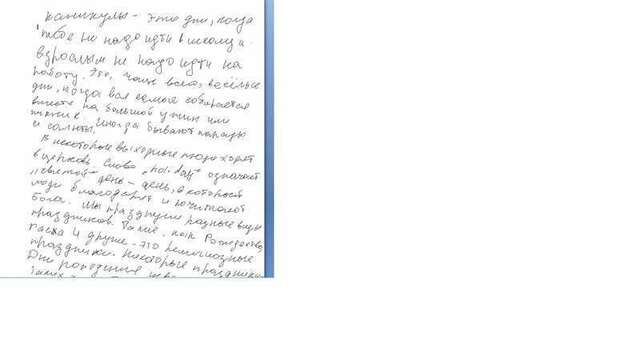 Каникулы - это дни, когда
тебе не надо идти в школу и
взрослым не надо идти на
работу. Это, чаще всего, весёлые
дни, когда вся семья собирается
вместе на большой ужин или
пикник. Иногда бывают парады
и салюты.
В некоторые выходные люди ходят
в церковь. Слово "holiday" означает
"святой" день - день, в который
люди благодарят и почитают
Бога. Мы празднуем разные виды
праздников. Такие, как Рождество,
Пасха и другие - это религиозные
праздники. Некоторые праздники
Дни рождения